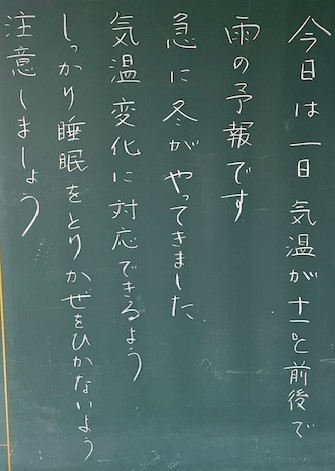 今日は一日気温が十一℃前後で
雨の予報です
急に冬がやってきました
気温変化に対応できるよう
しっかり睡眠をとりかぜをひかないよう
注意しましょう